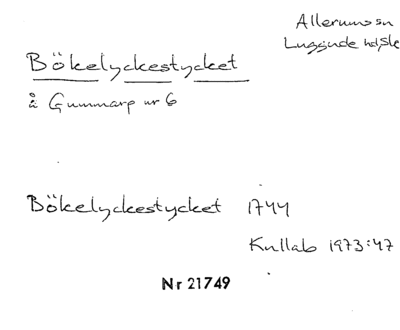 Allerums sn
Luggude hd, Sk
Bökelyckestycket
å Gummarp nr 6
Bökelyckestycket 1744
Kullab 1973:47
Nr 21749